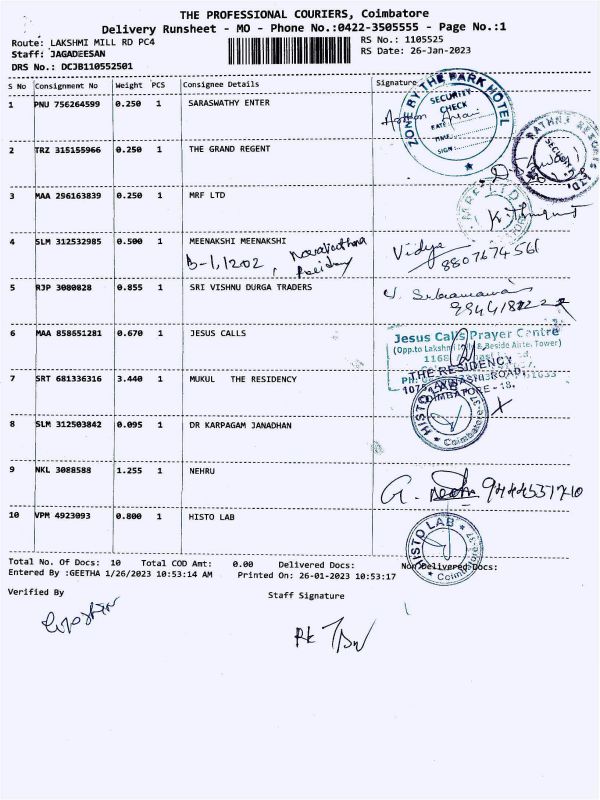 THE PROFESSIONAL COURIERS, Coimbatore
Delivery Runsheet - MO - Phone No.:0422-3505555 - Page No.:1
Route: LAKSHMI MILL RD PC4
RS No.: 1105525
Staff: JAGADEESAN
RS Date: 26-Jan-2023
DRS No.: DCJB110552501
S No Consignment No Weight PCS Consignee Details Signature
1 PNU 756264599 0.250 1 SARASWATHY ENTER
ZONE BY THE PARK HOTEL
SECURITY
CHECK
DATE
TIME
SIGN
2 TRZ 315155966 0.250 1 THE GRAND REGENT
3 MAA 296163839 0.250 1 MRF LTD
4 SLM 312532985 0.500 1 MEENAKSHI MEENAKSHI
B-1,1202,
Vidya
8807674561
5 RJP 3080828 0.855 1 SRI VISHNU DURGA TRADERS
6 MAA 858651281 0.670 1 JESUS CALLS
Jesus Calls Prayer Centre
7 SRT 681336316 3.440 1 MUKUL THE RESIDENCY
THE RESIDENCY
COIMBATORE - 18.
HISTO LAB
Coimbatore-37
8 SLM 312503842 0.095 1 DR KARPAGAM JANADHAN
9 NKL 3088588 1.255 1 NEHRU
10 VPM 4923093 0.800 1 HISTO LAB
HISTO LAB
Coimbatore-37
Total No. Of Docs: 10 Total COD Amt: 0.00 Delivered Docs: Non Delivered Docs:
Entered By :GEETHA 1/26/2023 10:53:14 AM Printed On: 26-01-2023 10:53:17
Verified By
Staff Signature